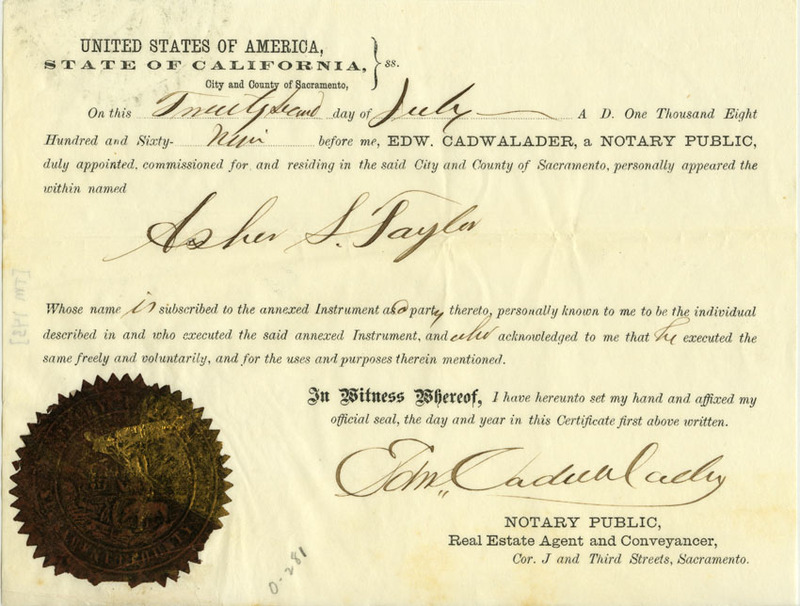 UNITED STATES OF AMERICA,
STATE OF CALIFORNIA, } ss.
City and County of Sacramento,
On this Twenty second day of July A D. One Thousand Eight
Hundred and Sixty- Nine before me, EDW. CADWALADER, a NOTARY PUBLIC,
duly appointed, commissioned for and residing in the said City and County of Sacramento, personally appeared the
within named
Asher S. Taylor
Whose name is subscribed to the annexed Instrument as a party thereto, personally known to me to be the individual
described in and who executed the said annexed Instrument, and who acknowledged to me that he executed the
same freely and voluntarily, and for the uses and purposes therein mentioned.
In Witness Whereof, I have hereunto set my hand and affixed my
official seal, the day and year in this Certificate first above written.
Edw. Cadwalader
NOTARY PUBLIC,
Real Estate Agent and Conveyancer,
Cor. J and Third Streets, Sacramento.
0-281